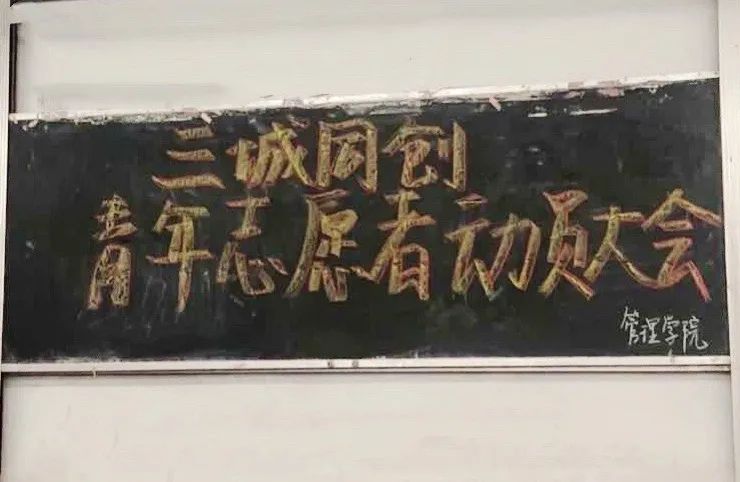 三城同创
青年志愿者动员大会
管理学院